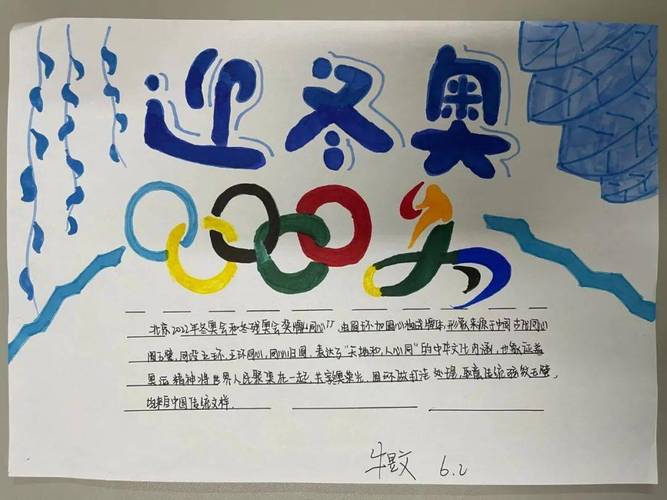 迎冬奥
北京2022年冬奥会和冬残奥会奖牌"同心"，由圆环加圆心构造牌体，形象来源于中国古代同心
圆玉璧，同设五环，五环同心，同心归圆，表达了"天地和，人心同"的中华文化内涵，也象征着
奥运精神将世界人民聚集在一起，共享奥荣光，圆环做打洼处理，取意传统弦纹玉璧，
均来自中国传统文样.
6.2